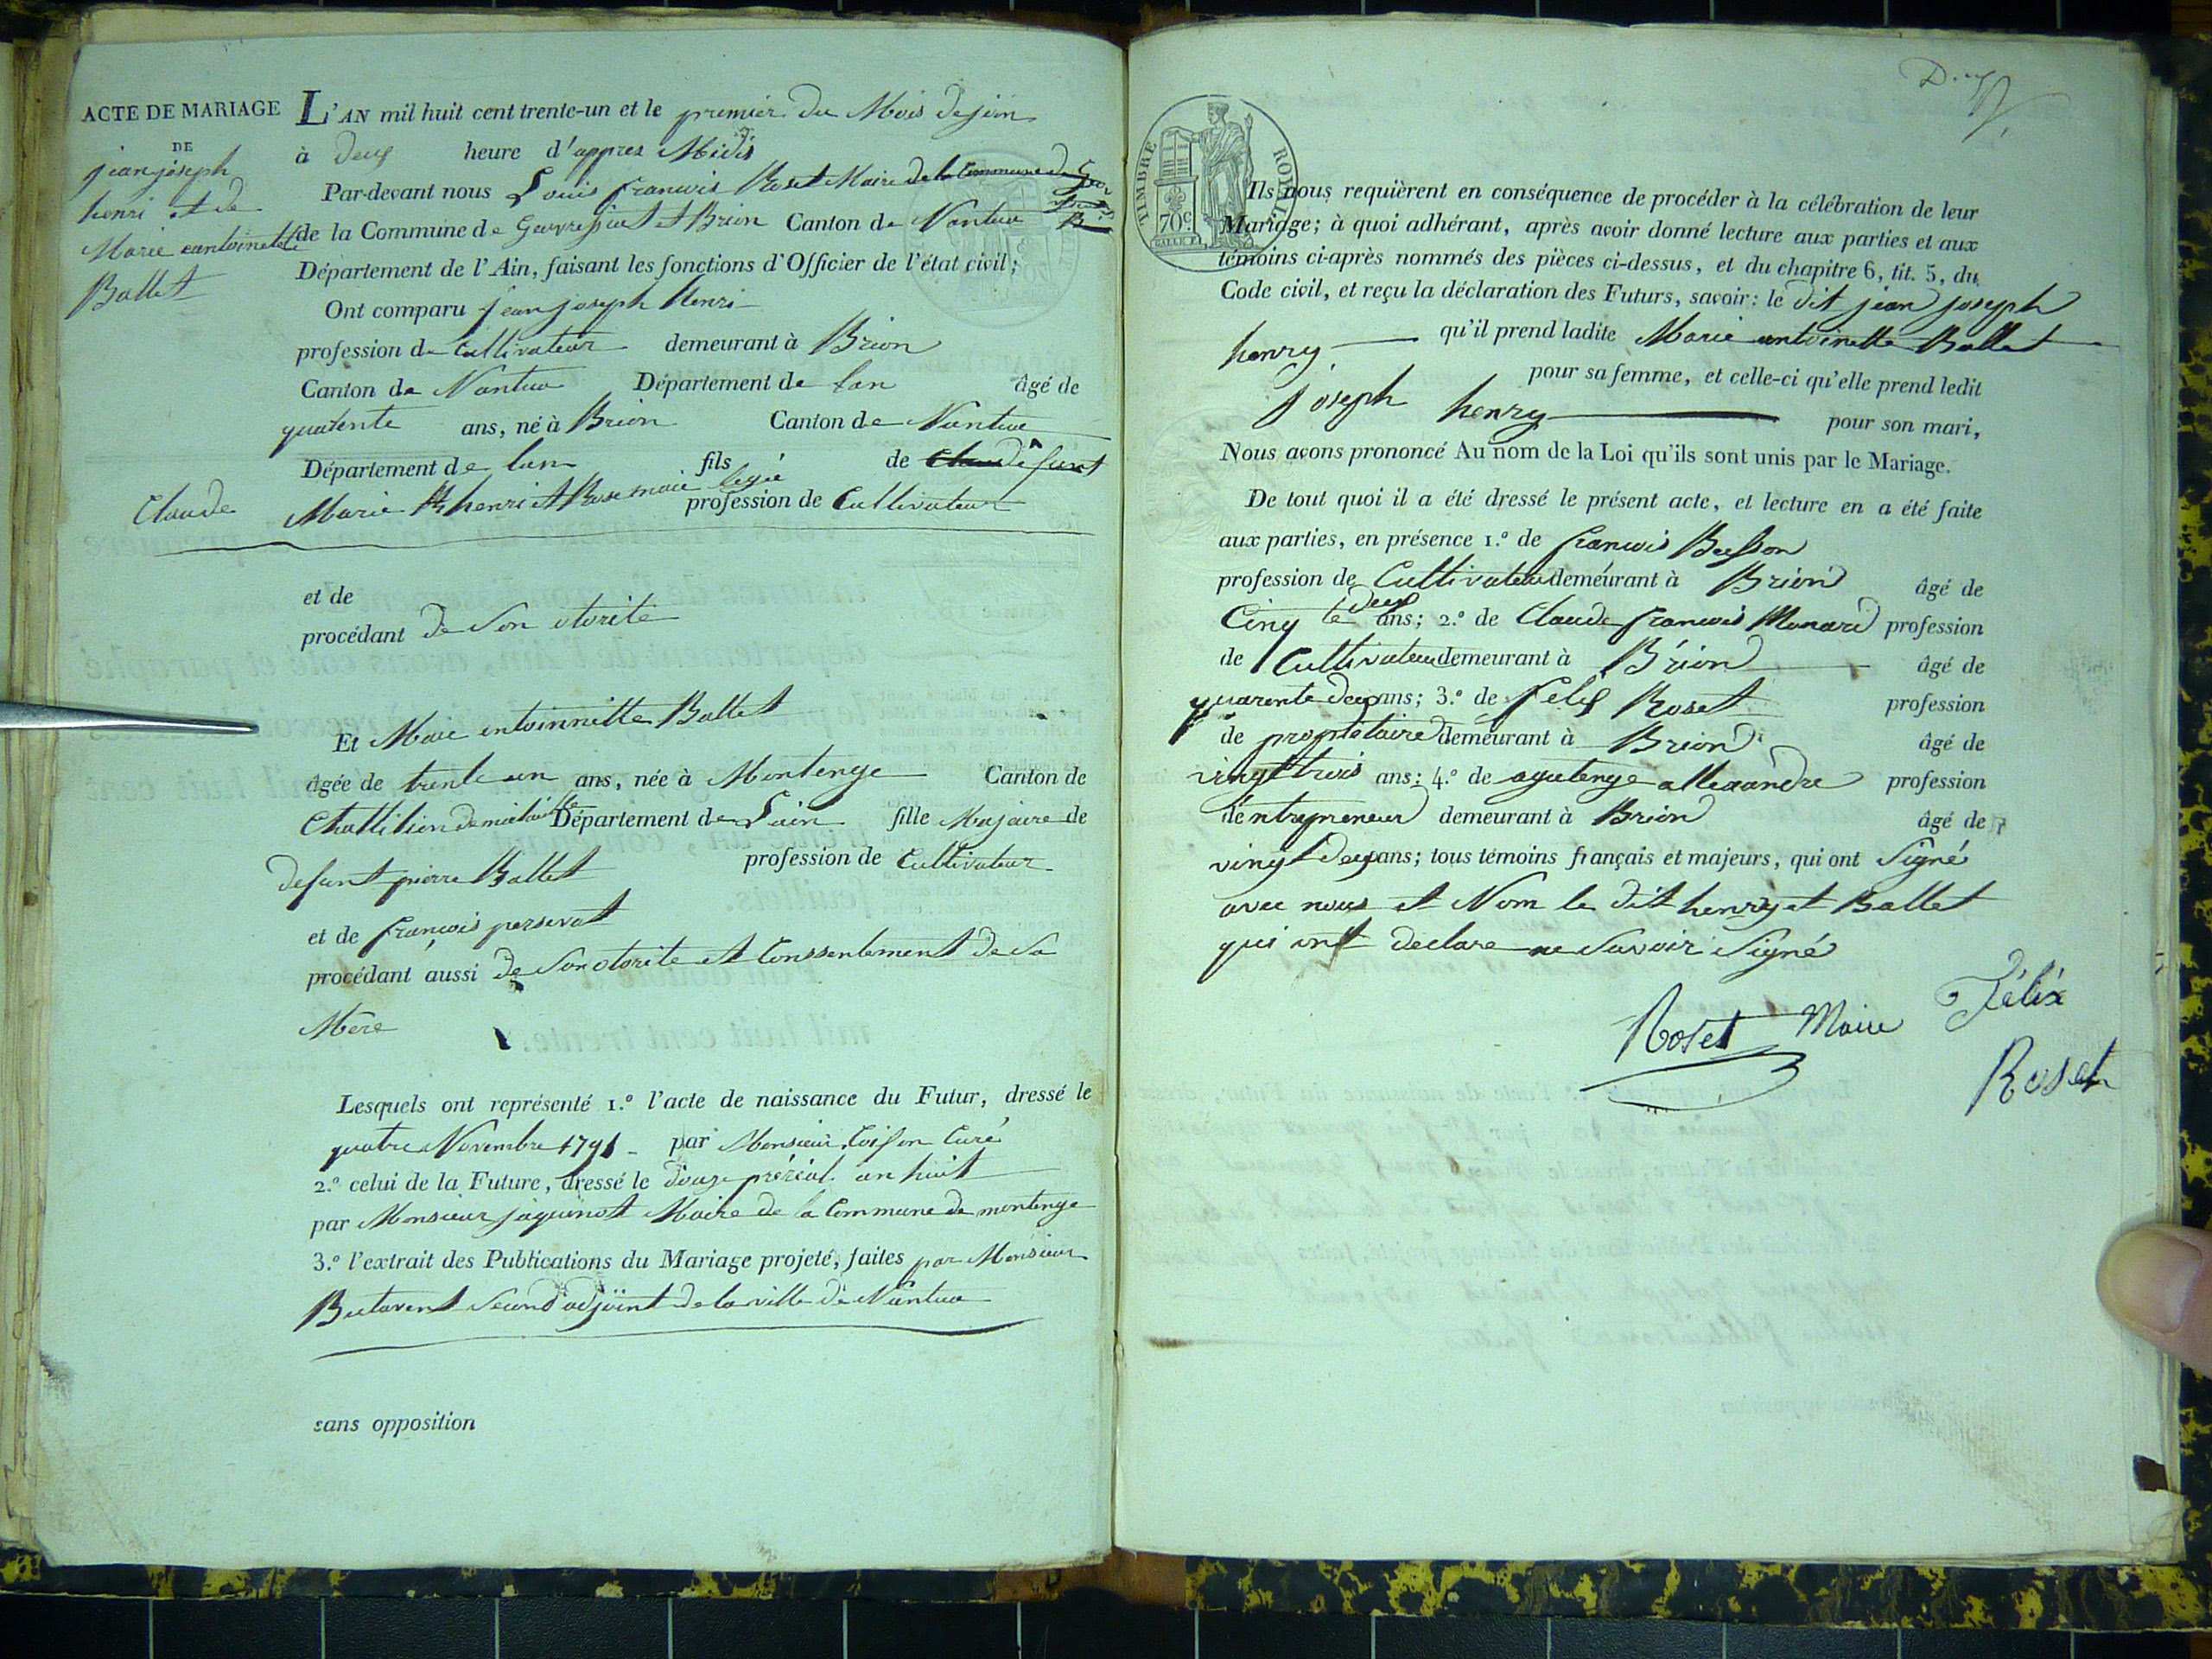 ACTE DE MARIAGE
DE
jean joseph
henri et de
Marie eantoinette
Ballet
L'AN mil huit cent trente-un et le premier du Mois de juin
à deux heure d'appres Midis
Par-devant nous Louis francois Roset Maire de la Commune de
de la Commune de Geovressiat et Brion Canton de Nantua
Département de l'Ain, faisant les fonctions d'Officier de l'état civil;
Ont comparu jean joseph henri
profession de Cultivateur demeurant à Brion
Canton de Nantua Département de lan âgé de
quatente ans, né à Brion Canton de Nantua
Département de lan fils de defunt
Claude Marie henri et Rose marie profession de Cultivateur
et de
procédant de Son otorite
Et Marie entoinnette Ballet
âgée de trente un ans, née à Montenge Canton de
Chattilion de michaille Département de Lain fille Majaire de
defunt pierre Ballet profession de Cultivateur
et de francois perserat
procédant aussi de Son otorite et Conssentement de Sa
Mère
Lesquels ont représenté 1.º l'acte de naissance du Futur, dressé le
quatre Novembre 1791 par Monsieur Coison Curé
2.º celui de la Future, dressé le douze prérial an huit
par Monsieur jaquinot Maire de la Commune de montenge
3.º l'extrait des Publications du Mariage projeté, faites par Monsieur
Second adjoint de la ville de Nantua
sans opposition
TIMBRE ROYAL
70c.
Ils nous requièrent en conséquence de procéder à la célébration de leur
Mariage; à quoi adhérant, après avoir donné lecture aux parties et aux
témoins ci-après nommés des pièces ci-dessus, et du chapitre 6, tit. 5, du
Code civil, et reçu la déclaration des Futurs, savoir: le dit jean joseph
henry qu'il prend ladite Marie antoinette Ballet
pour sa femme, et celle-ci qu'elle prend ledit
joseph henry pour son mari,
Nous avons prononcé Au nom de la Loi qu'ils sont unis par le Mariage.
De tout quoi il a été dressé le présent acte, et lecture en a été faite
aux parties, en présence 1.º de francois Besson
profession de Cultivateur demeurant à Brion âgé de
Cinq te deux ans; 2.º de Claude francois Monard profession
de Cultivateur demeurant à Brion âgé de
quarente deux ans; 3.º de felix Roset profession
de propriétaire demeurant à Brion âgé de
vingt trois ans; 4.º de agutenge allexandre profession
d'entrepreneur demeurant à Brion âgé de
vingt deux ans; tous témoins français et majeurs, qui ont Signé
avec nous et Nom le dit henry et Ballet
qui ont declare ne Savoir Signé
Roset Maire
Félix
Roset